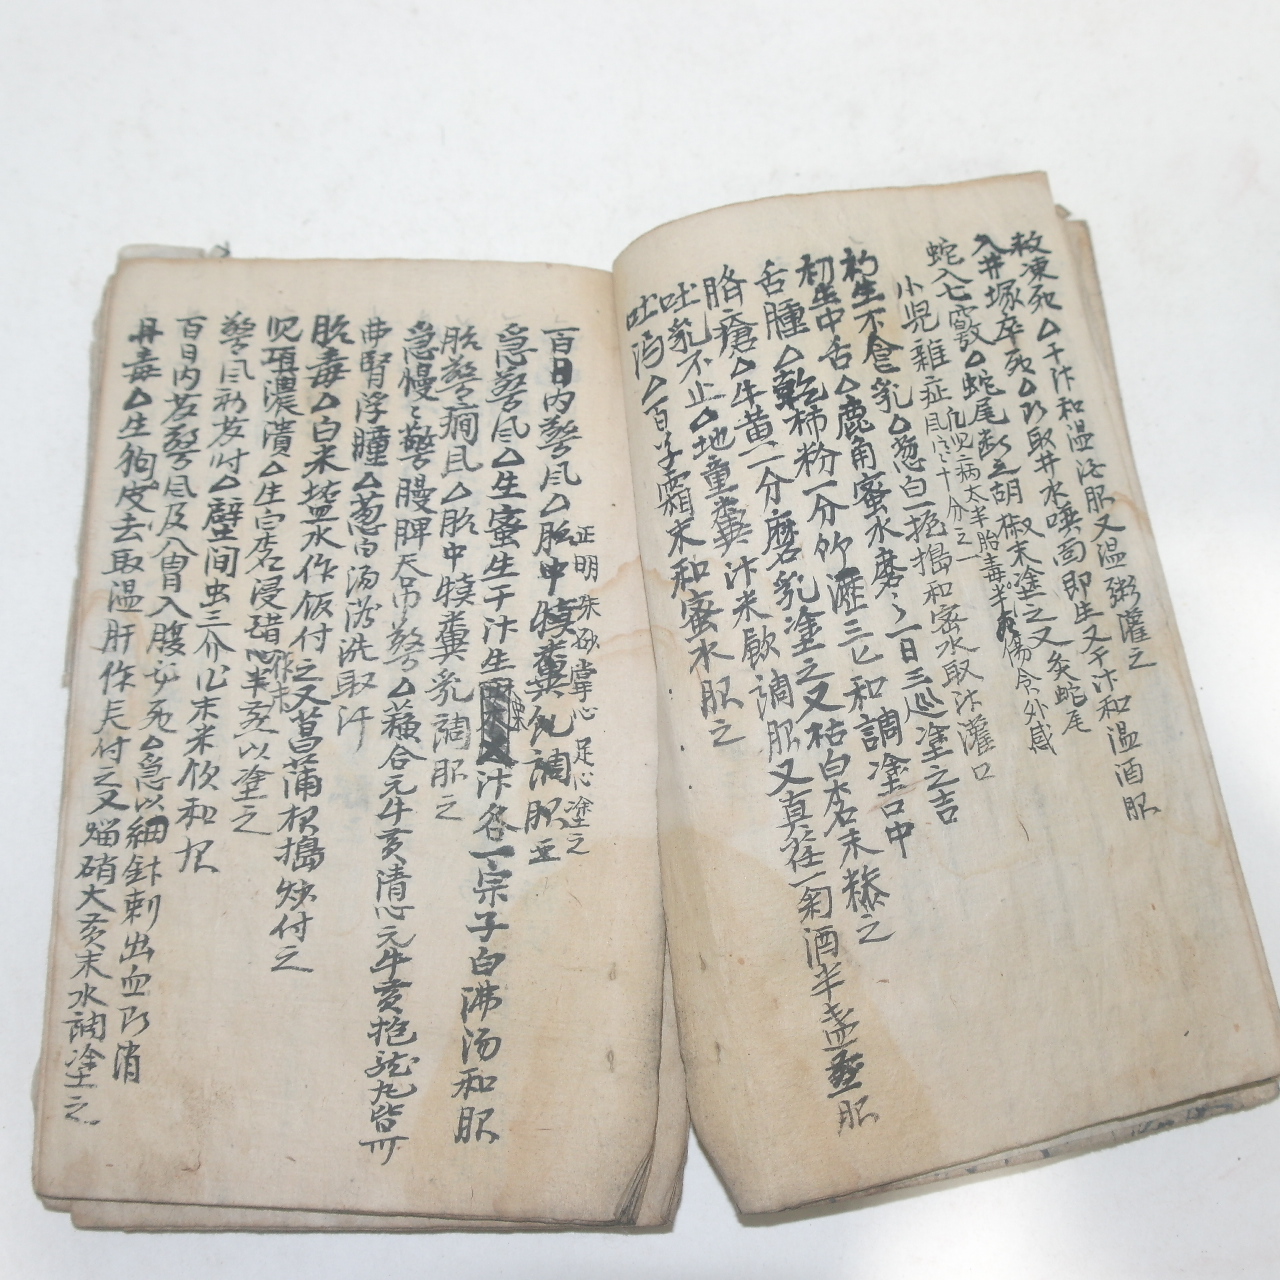 救凍死△干汁和温酒服又温粥灌之
入井塚卒死△即取井水噀面即生又干汁和温酒服
蛇入七竅△蛇尾割立胡椒末塗之又灸蛇尾
小児雜症 凡小児病太半胎毒半傷令外感 風 十分之一
初生不食乳△葱白一 搗和蜜水取汁灌口
初生中舌△鹿角蜜水磨〻一日三巡塗之吉
舌腫△乾柿粉一分竹瀝三匕和調塗口中
胳瘡△牛黄二分磨乳塗之又枯白 末糝之
吐乳不止△地童糞汁米飮調服又真 一菊酒半盞 服
吐瀉△百 霜末和蜜水服之
正明朱砂掌心足心塗之
百日内驚風△胎中 糞乳調服
急驚風△生蜜生干汁生 汁各一宗子白沸湯和服
胎驚癎風△胎中 糞乳調服之
急慢〻驚慢脾天吊驚△蘓合元牛黄清心元牛黄抱龍丸皆
弗腎浮腫△葱白湯 洗取汗
胎毒△白米塩水作飯付之又菖蒲根搗 付之
児項濃潰△生 浸醋 作末 以塗之
驚風初發付△壁間虫三介作末米飮和服
百日内發驚風及入胃入腹必死△急以細針刺出血即消
丹毒△生狗皮去取温肝作片付之又焰硝大黄末水調塗之